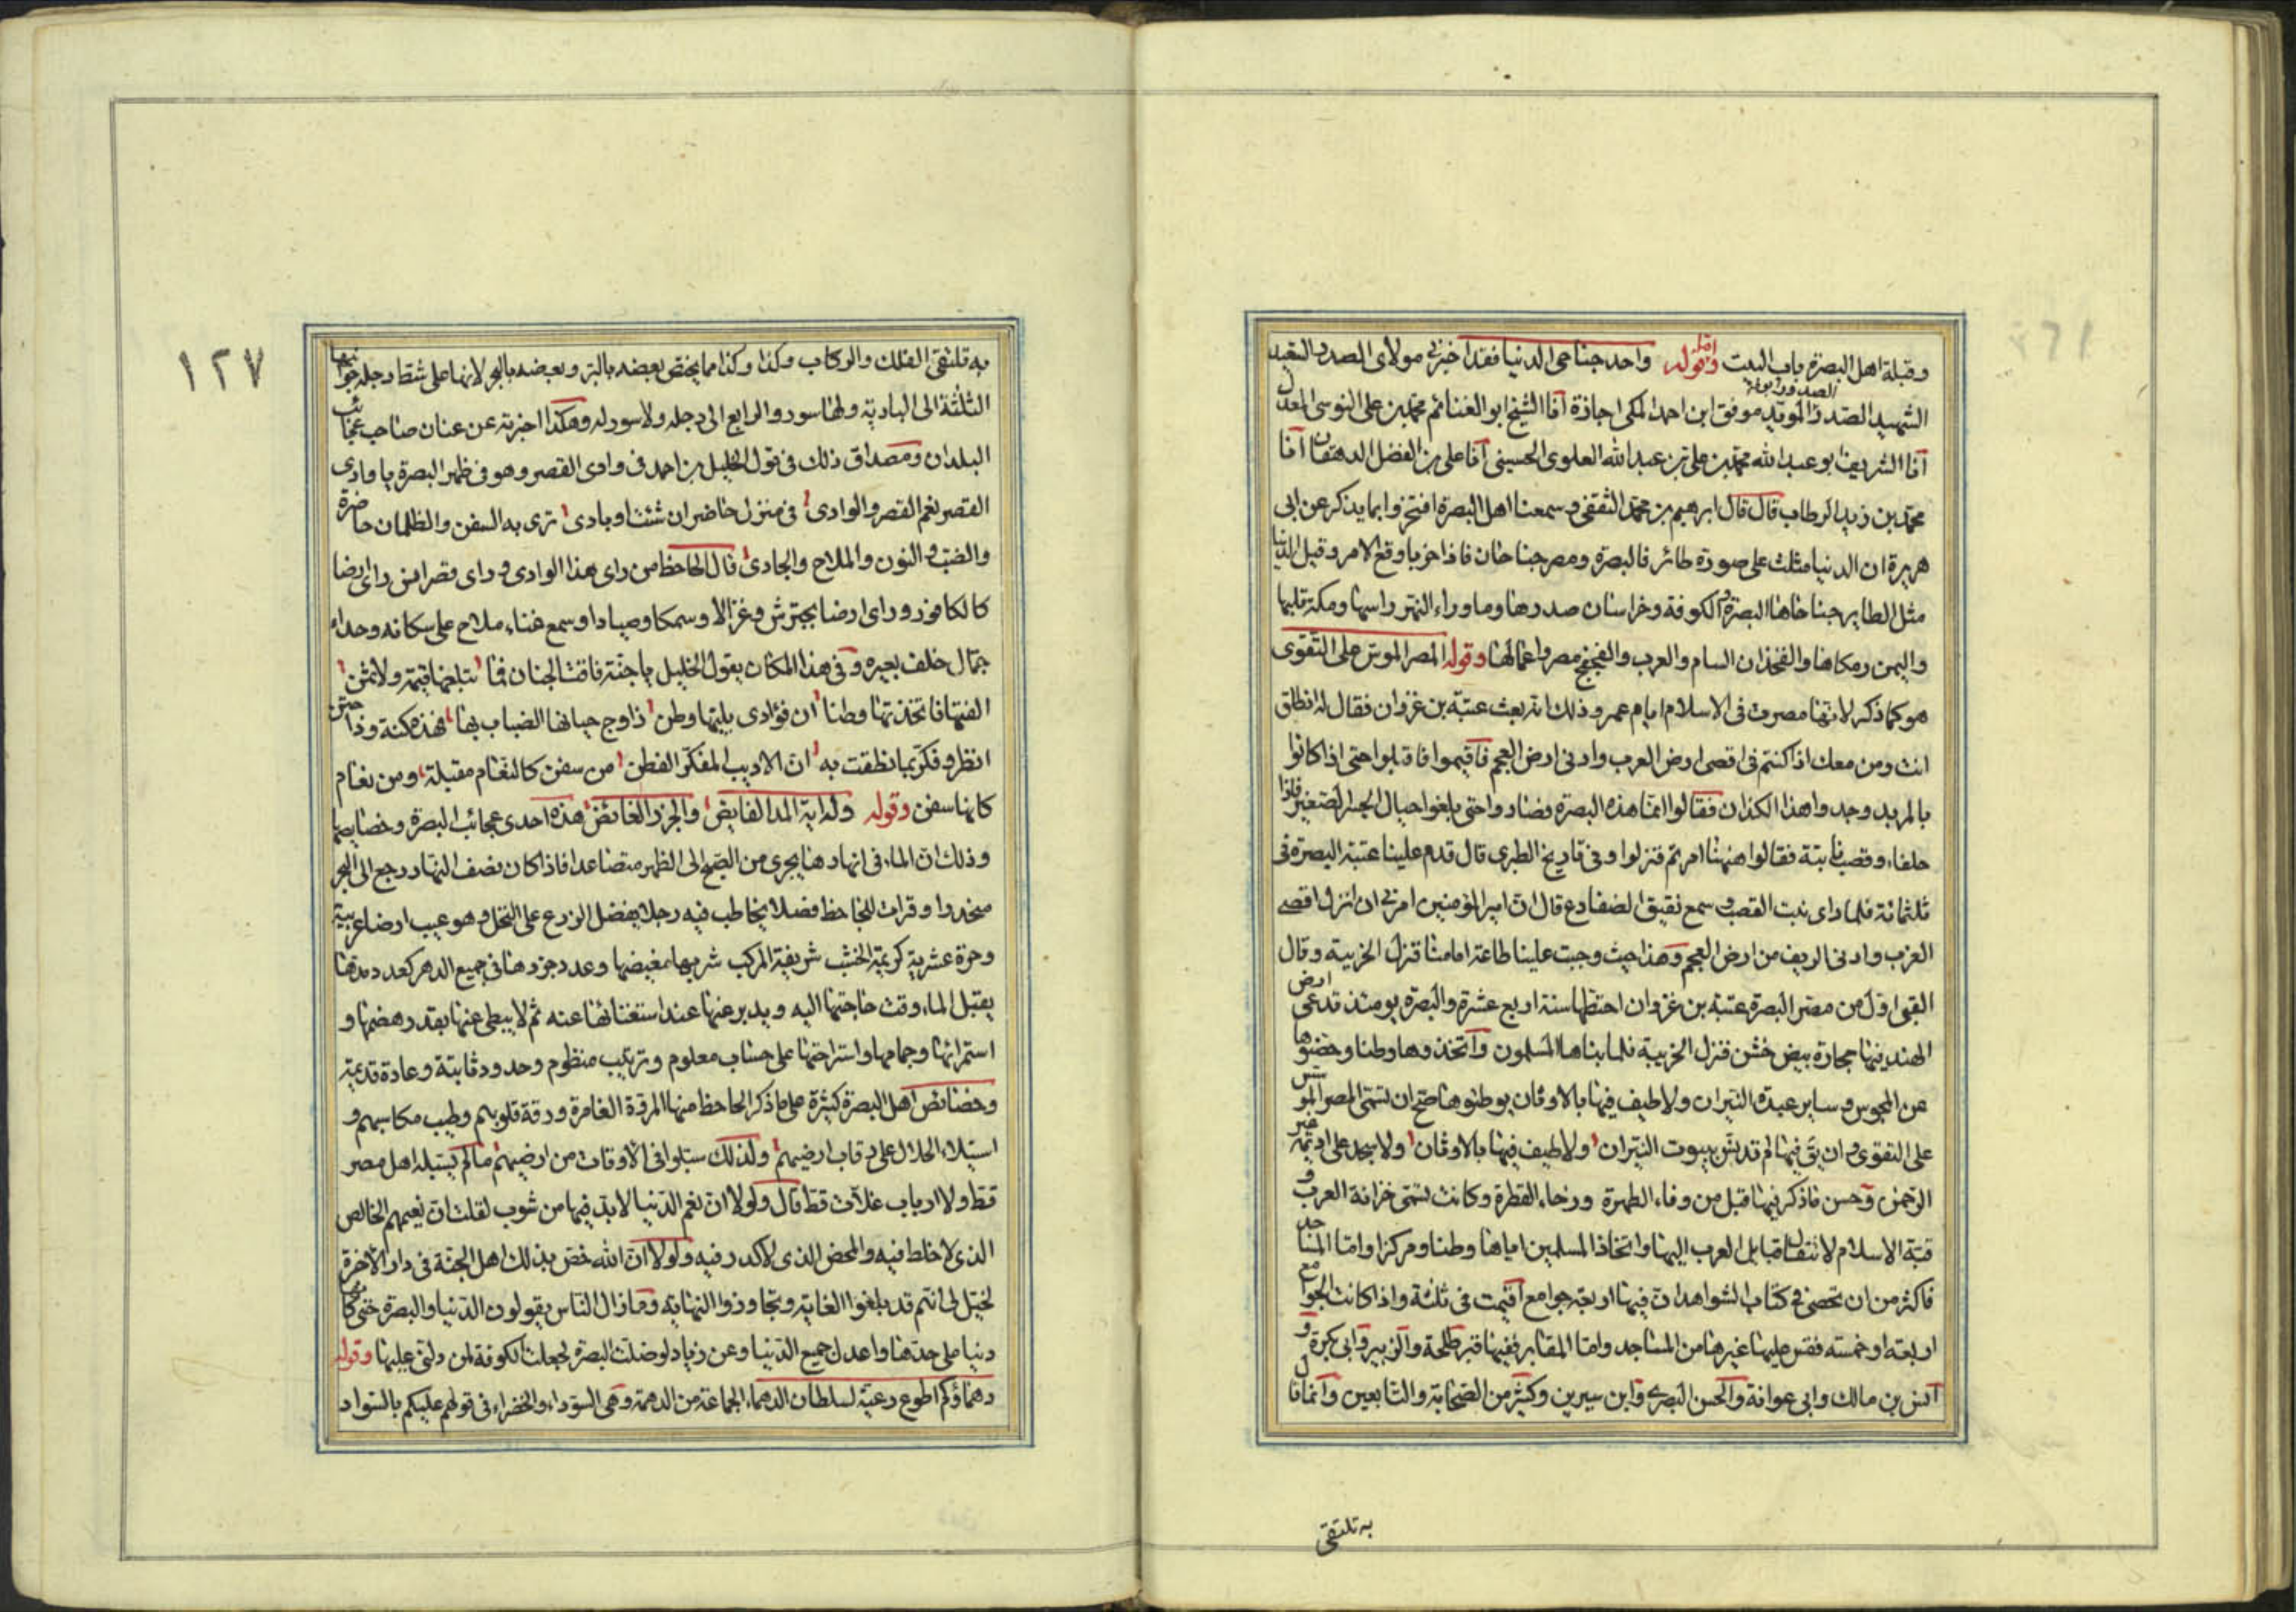 وقبلة اهل البصرة باب البيت وقوله واحد جناحى الدنيا فقد اخبرنى مولاى الصدر السعيد
الشهيد الصدر المؤيد موفق ابن احمد المكى اجازة انا الشيخ ابو الغنائم محمد بن على النوسى المعدل
انا الشريف ابو عبد الله محمد بن على بن عبد الله العلوى الحسينى انا على بن الفضل الدهقان انا
محمد بن زيد الرطاب قال قال ابرهيم بن محمد الثقفى وسمعنا اهل البصرة افتخروا بما يذكر عن ابى
هريرة ان الدنيا مثلت على صورة طائر فالبصرة ومصر جناحان فاذا خربا وقع الامر وقيل الدنيا
مثل الطاير جناحاها البصرة والكوفة وخراسان صدرها وما وراء النهر راسها ومكة قلبها
واليمن والفخذان السام والعرب مصر واعمالها وقوله المصر الموسس على التقوى
هو كما ذكر لانها مصرت فى الاسلام ايام عمر وذلك انه بعث عتبة بن غزوان فقال له انطلق
انت ومن معك اذا كنتم فى اقصى ارض العرب وادنى ارض العجم فاقيموا فاقبلوا حتى اذا كانوا
بالمربد وجدوا هذا الكذان فقالوا انما هذه البصرة فساروا حتى بلغوا حيال الجسر الصغير فاذا
حلفاء وقصب نابتة فقالوا هيهنا امرتم فنزلوا وفى تاريخ الطبرى قال قدم علينا عتبة البصرة فى
ثلثمائة فلما راى نبت القصب وسمع نقيق الضفادع قال ان امير المؤمنين امرنى ان انزل اقصى
العرب وادنى الريف من ارض العجم وهذا حيث وجبت علينا طاعة امامنا فنزل الخريبة وقال
القبى اول من مصر البصرة عتبة بن غزوان اختطها سنة اربع عشرة والبصرة يومئذ تدعى ارض
الهند فيها حجارة بيض خشن فنزل الخريبة فلما بناها المسلمون واتخذوها وطنا وحضنوها
عن المجوس وساير عبدة النيران ولا طيف فيها بالاوثان يوطنوها صح ان تسمى المصر الموسس
على التقوى وان بق فيها لم تدنس ببيوت النيران ولا طيف فيها بالاوثان ولا سجد على اديمه غير
الرحمن وحسن ما ذكر فيها قيل من وفاء الطهرة ورخاء القطرة وكانت تسمى خزانة العرب و
قبة الاسلام لانتقال قبايل العرب اليها واتخاذ المسلمين اياها وطنا ومركزا واما المساجد
فاكثر من ان تحصى فى كتاب الشواهد ان فيها اربعة جوامع اقيمت فى ثلثة واذا كانت الجوامع
اربعة او خمسه فقس عليها غيرها من المساجد واما المقابر ففيها قبر طلحة والزبير وابى بكرة و
انس بن مالك وابى عوانة والحسن البصرى وابن سيرين وكثير من الصحابة والتابعين وانما قال
به تلتقى
١٢٧
به تلتقى الفلك والركاب وكذا وكذا مما يختص بعضه بالبر وبعضه بالبحر لانها على شط دجله جوانبها
الثلثة الى البادية ولها سور والرابع الى دجله ولا سور له وهكذا اخبرته عن عنان صاحب عجائب
البلدان ومصداق ذلك فى قول الخليل بن احمد فى وادى القصر وهو فى ظهر البصرة يا وادى
القصر نعم القصر والوادى فى منزل حاضر ان شئت او بادى ترى به السفن والظلمان حاضرة
والضب والنون والملاح والحادى قال الجاحظ من راى هذا الوادى وراى قصر انس راى ارضا
كالكافور وراى ارضا بجترش وغزالا وسمكا وصيادا وسمع غناء ملاح على سكانه وحداء
جمال خلف بعيره وفى هذا المكان يقول الخليل يا جنة فاقت الجنان فما تبلغها قيمة ولا ثمن
الفتها فاتخذتها وطنا ان فؤادى بليتها وطن زاوج حيتانها الضباب بها فهذه كنة وذا ختن
انظر وفكر بما نطقت به ان الاديب المفكر الفطن من سفن كالنعام مقبلة ومن نعام
كانها سفن وقوله وله اية المد الفايض والجزر الغائض هذه احدى عجائب البصرة وخصايصها
وذلك ان الماء فى انهارها يجرى من الصبح الى الظهر متصاعدا فاذا كان نصف النهار رجع الى البحر
منحدرا وقرات للجاحظ فصلا يخاطب فيه رجلا يفضل الزرع على النخل وهو عيب ارضا عربية
وحرة عشرية كريمة الخشب شريفة المركب شربها بمغيضها وعدد جزرها فى جميع الدهر كعدد مدها
يقبل الماء وقت حاجتها اليه ويدبر عنها عند استغنائها عنه ثم لا يبطى عنها بقدر هضمها و
استمرائها وجمامها واستراحتها على حساب معلوم وترتيب منظوم وحدود ثابتة وعادة قديمة
وخصائص اهل البصرة كثيرة على ما ذكر الجاحظ منها المروة الغامرة ورقة قلوبهم وطيب مكاسبهم و
استيلاء الحلال على رقاب ارضيهم ولذلك سبلوا فى الاوقات من ارضيهم ما لم يسبله اهل مصر
قط ولا ارباب غلات قط قال ولولا ان نعم الدنيا لابد فيها من شوب لقلت ان نعيمهم الخالص
الذى لا خلط فيه والمحض الذى لا كدر فيه ولولا ان الله خص بذلك اهل الجنة فى دار الاخرة
لخيل لى انتم قد بلغوا الغاية وتجاوزوا النهاية وما زال الناس يقولون الدنيا والبصرة حتى كانها
دنيا على حدتها واعدل جميع الدنيا وعن زياد لو ضلت البصرة لجعلت الكوفة لمن دلنى عليها وقوله
دهماؤكم اطوع رعية لسلطان الدهماء الجماعة من الدهمة وهى السوداء والخضراء فى قولهم عليكم بالسواد